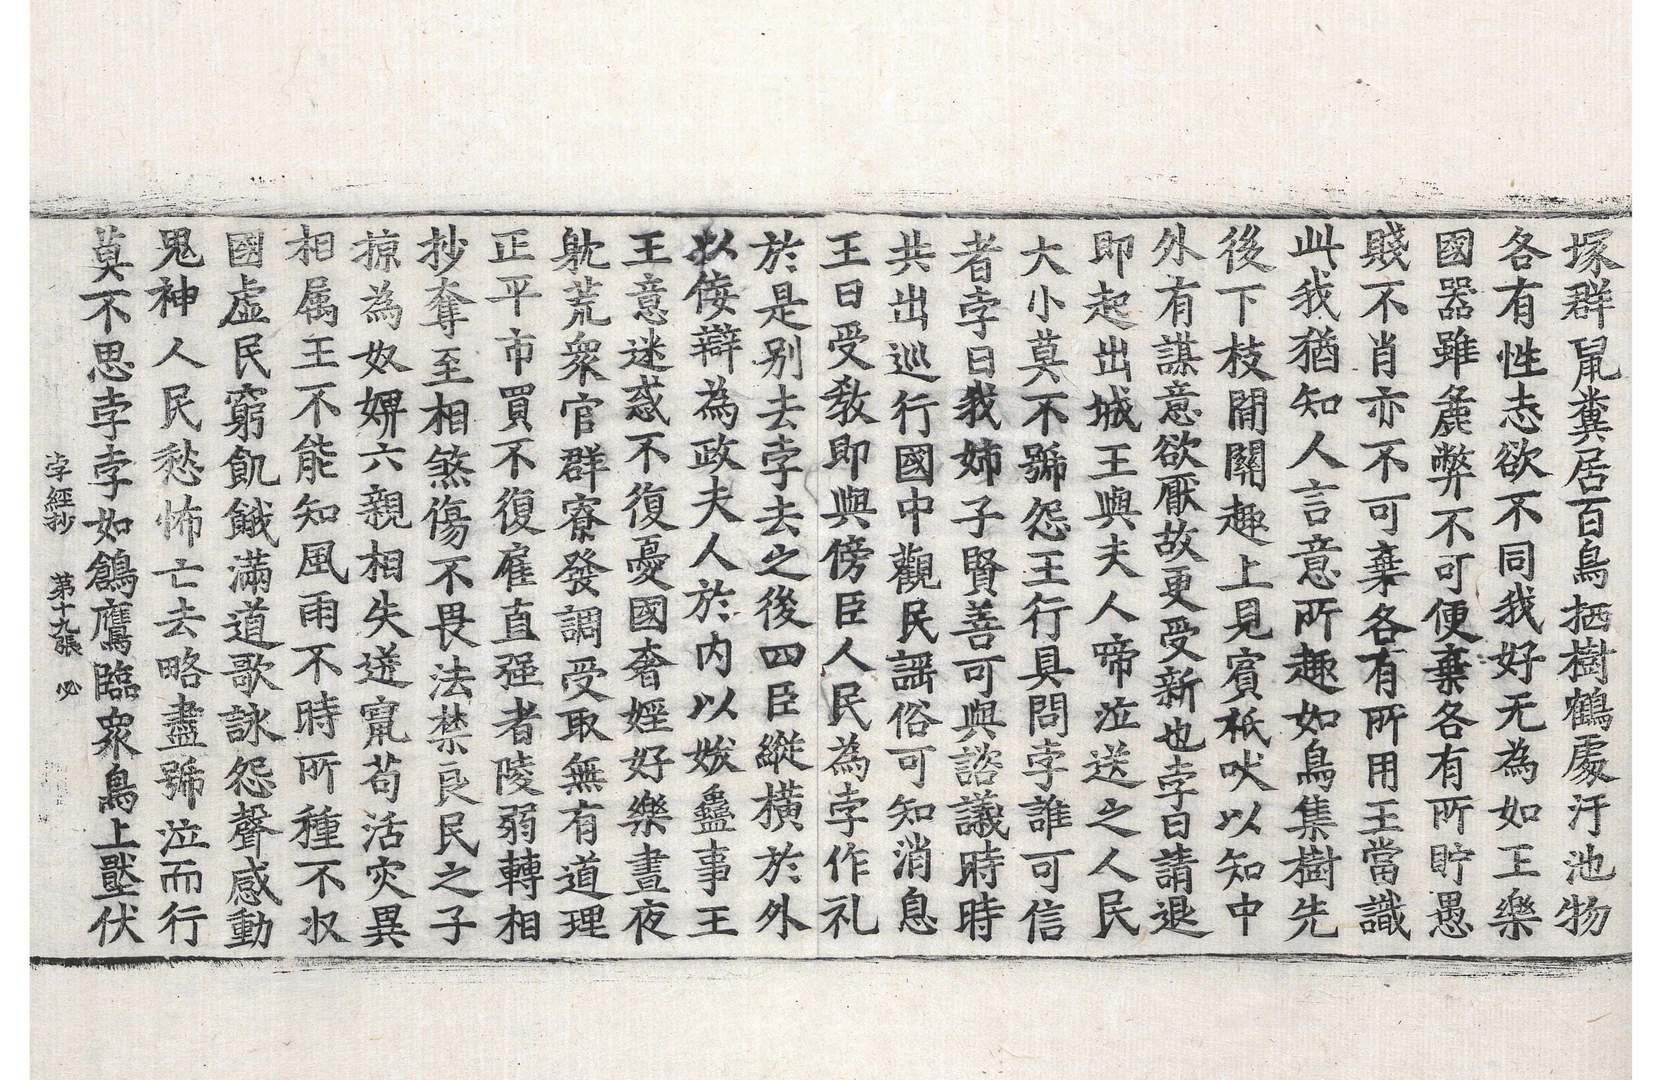 塚群鼠糞居百鳥栖樹鶴處汙池物
各有性志欲不同我好无為如王樂
國器雖麁弊不可便棄各有所貯愚
賤不肖亦不可棄各有所用王當識
此我猶知人言意所趣如鳥集樹先
後下枝閒關趣上見賓秖吠以知中
外有謀意欲厭故更受新也孛曰請退
即起出城王與夫人啼泣送之人民
大小莫不號怨王行且問孛誰可信
者孛曰我姉子賢善可與諮議時時
共出巡行國中觀民謡俗可知消息
王曰受敎即與傍臣人民為孛作礼
於是別去孛去之後四臣縱橫於外
以倿辯為政夫人於内以妖蠱事王
王意迷惑不復憂國奢婬好樂晝夜
躭荒衆官群寮發調受取無有道理
正平市買不復雇直强者陵弱轉相
抄奪至相煞傷不畏法禁良民之子
掠為奴婢六親相失迸竄苟活灾異
相属王不能知風雨不時所種不収
國虛民窮飢餓滿道歌詠怨聲感動
鬼神人民愁怖亡去略盡號泣而行
莫不思孛孛如鵒鷹臨衆鳥上壓伏
孛經抄 第十九張 必